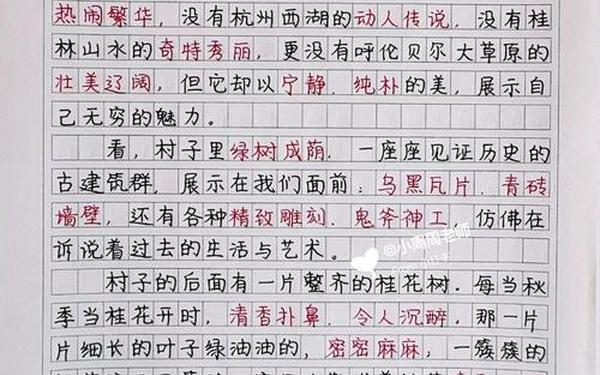 热闹繁华，没有杭州西湖的动人传说，没有桂
林山水的奇特秀丽，更没有呼伦贝尔大草原的
壮美辽阔，但它却以宁静、纯朴的美，展示自
己无穷的魅力。
看，村子里绿树成荫，一座座见证历史的
古建筑群，展示在我们面前：乌黑瓦片、青砖
墙壁，还有各种精致雕刻、鬼斧神工，仿佛在
诉说着过去的生活与艺术。
@小周周老师
村子的后面有一片整齐的桂花树。每当秋
季当桂花开时，清香扑鼻、令人沉醉，那一片
片细长的叶子绿油油的，密密麻麻，一簇簇的